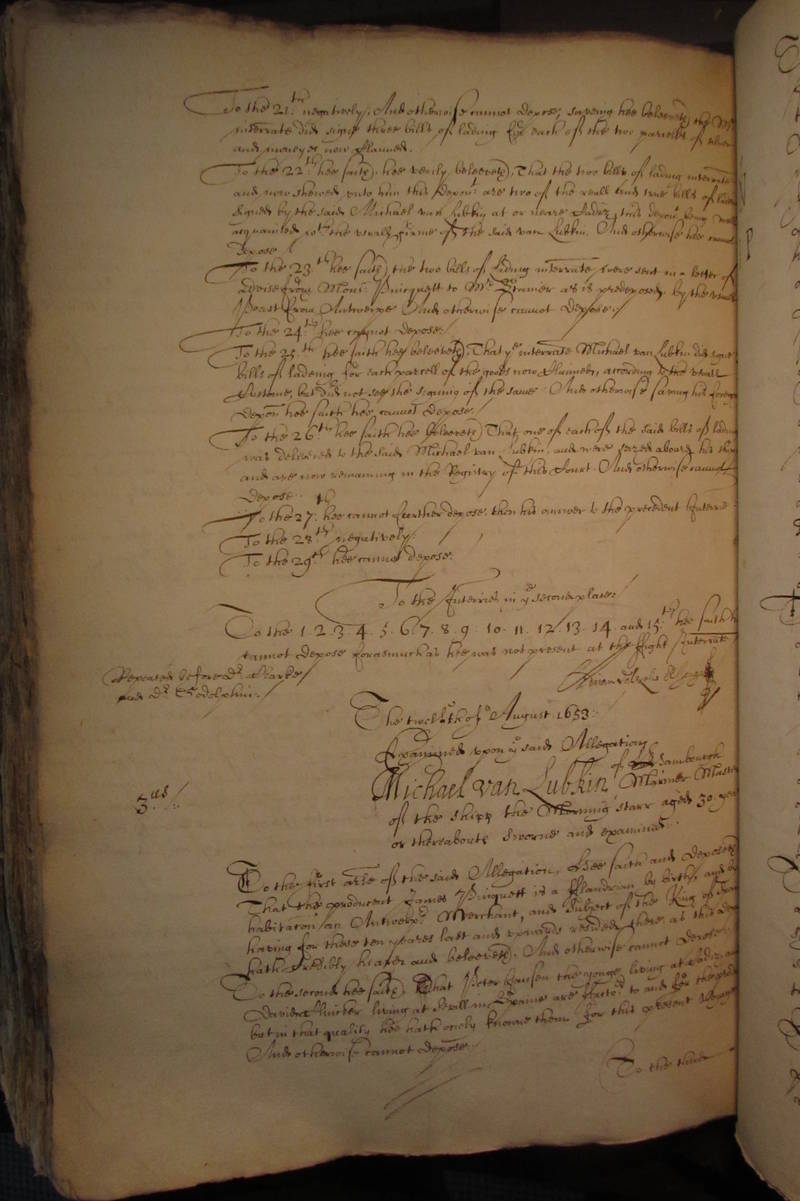 To the 21.th negatively, And otherwise cannot depose, saveing hee beleeveth the sd
interrate did signe three bills of lading for each of the two parcells of silver
and moneyes now claimed.
To the 22.th hee saith, hee verily beleeveth, That the two bills of lading interrate
and now shewed unto him this deponent are two of the reall and true bills of lading
signed by the said Michael van Lubkin at or neare Cadiz, this deponent being well
acquainted with the usuall firme of the said van Lubkin. And otherwise hee cannot
depose.
To the 23.th hee saith, the two bills of lading interrate were sent in a letter of
advise from Monsr Pincquett to Mr as is predeposed, by the usuall
Poast from Antwerpe And otherwise cannot depose.
To the 24.th hee cannot depose.
To the 25.th hee saith hee beleeveth, That ye interrate Michael van Lubkin did signe
bills of ladeing for each parcell of the goods now claimed, according to the usuall
custome, but did not see the signing of the same And otherwise saving his foregoing
deposn hee saith hee cannot depose.
To the 26.th hee saith hee beleeveth, That one of each of the said bills of lading
was delivered to the said Michael van Lubkin, and were seized aboard his ship
and are now remaining in the Registry of this Court. And otherwise cannot
depose.
To the 27.th hee cannot further depose, then his answer to the precedent Interrie
To the 28.th negatively.
To the 29.th hee cannot depose.
To the Interries in ye second place
To the 1. 2. 3. 4. 5. 6. 7. 8. 9. 10. 11. 12. 13. 14. and 15.th hee saith hee
cannot depose forasmuch as hee was not present at the fight Interrate
Repeated before Dr. Clarke
and Dr. Godolphin.
The twelfth of August. 1653.
Examined upon ye said Allegation.
3us
Michael van Lubkin of Hambourok Mariner Master
of the shipp the Morning starr aged 30 yeares
or thereabouts sworne and examined.
To the first arle of the said Allegation, Hee saith and deposeth
That the producent James Pincquett is a Flandrian by birth, and by
habitation an Antwerp Merchant, and subject of the King of Spaine
having for these ten yeares last and upwards resided there as this depont
hath credibly heard and beleeveth. And otherwise cannot depose.
To the second hee saith, That Peter Jansen the yonge living at Cadiz, and
living at Sevill in Spaine are factors to and for the producent
but in that quality hee hath onely knowne them for this present voyage
And otherwise cannot depose.
To the third